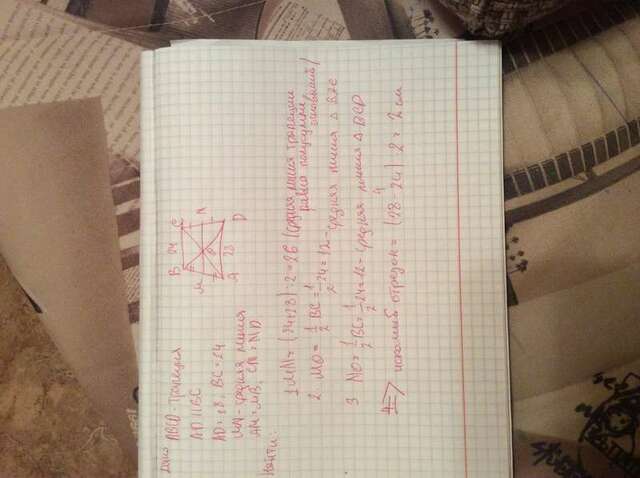 Дано ABCD - Трапеция
AD || BC
AD = 28, BC = 24
MN - средняя линия
AM = MB, CN = ND
Найти:
B 24 C
M N
A 28 D
1 MN = (24+28) : 2 = 26 (средняя линия трапеции
равна полусумме
оснований)
2. MO = 1/2 BC = 1/2 24 = 12 - средняя линия Δ
3 NO = 1/2 BC = 1/2 24 = 12 - средняя линия Δ BCD
4 => искомый отрезок = (28 - 24) : 2 = 2 см